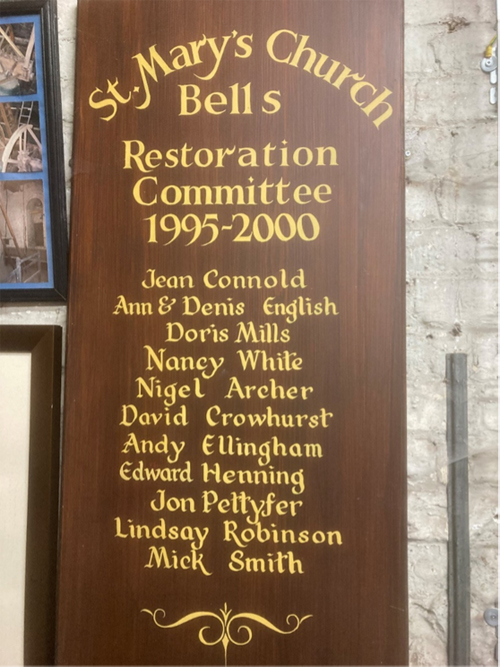 St. Mary's Church
Bells
Restoration
Committee
1995-2000
Jean Connold
Ann & Denis English
Doris Mills
Nancy White
Nigel Archer
David Crowhurst
Andy Ellingham
Edward Henning
Jon Pettyfer
Lindsay Robinson
Mick Smith